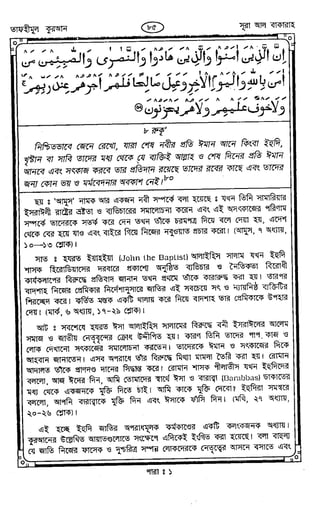 তাফহীমুল কুরআন
৮৫
সূরা আল বাকারাহ
إِنَّ الَّذِينَ آمَنُوا وَالَّذِينَ هَادُوا وَالنَّصَٰرَىٰ وَالصَّٰبِئِينَ مَنْ
آمَنَ بِاللَّهِ وَالْيَوْمِ الْآخِرِ وَعَمِلَ صَالِحًا فَلَهُمْ أَجْرُهُمْ عِندَ رَبِّهِمْ
وَلَا خَوْفٌ عَلَيْهِمْ وَلَا هُمْ يَحْزَنُونَ
৮ রুকূ'
নিশ্চিতভাবে জেনে রেখো, যারা শেষ নবীর প্রতি ঈমান আনে কিংবা ইহুদি,
খৃষ্টান বা সাবি তাদের মধ্য থেকে যে ব্যক্তিই আল্লাহ ও শেষ দিনের প্রতি ঈমান
আনবে এবং সৎকাজ করবে তার প্রতিদান রয়েছে তাদের রবের কাছে এবং তাদের
জন্য কোন ভয় ও মর্মবেদনার অবকাশ নেই।৮০
ছয় : 'আমূস' নামক আর একজন নবী সম্পর্কে বলা হয়েছে : যখন তিনি সামারিয়ার
ইসরাঈলী রাষ্ট্রের ভ্রষ্টতা ও ব্যভিচারের সমালোচনা করেন এবং এই অসৎকাজের পরিণাম
সম্পর্কে তাদেরকে সতর্ক করে দেন তখন তাঁকে চরমপত্র দিয়ে বলে দেয়া হয়, এদেশ
থেকে বের হয়ে যাও এবং বাইরে গিয়ে নিজের নবুওয়াত প্রচার করো। (আমূস, ৭ অধ্যায়,
১০-১৩ শ্লোক)।
সাত : হযরত ইয়াহ্ইয়া (John the Baptist) আলাইহিস সালাম যখন ইহুদি
শাসক হিরোডিয়াসের দরবারে প্রকাশ্যে অনুষ্ঠিত ব্যভিচার ও নৈতিকতা বিরোধী
কার্যকলাপের বিরুদ্ধে প্রতিবাদ জানান তখন প্রথমে তাঁকে কারারুদ্ধ করা হয়। তারপর
বাদশাহ নিজের প্রেমিকার নির্দেশানুসারে জাতির এই সবচেয়ে সৎ ও ন্যায়নিষ্ঠ ব্যক্তিটির
শিরচ্ছেদ করে। কর্তিত মস্তক একটি থালায় করে নিয়ে বাদশাহ তার প্রেমিকাকে উপহার
দেয়। (মার্ক, ৬ অধ্যায়, ১৭-২৯ শ্লোক)।
আট : সবশেষে হযরত ঈসা আলাইহিস সালামের বিরুদ্ধে বনী ইসরাঈলের আলেম
সমাজ ও জাতীয় নেতৃবৃন্দের ক্রোধ উদ্দীপিত হয়। কারণ তিনি তাদের পাপ কাজ ও
লোক দেখানো সৎকাজের সমালোচনা করতেন। তাদেরকে ঈমান ও সৎকাজের দিকে
আহবান জানাতেন। এসব অপরাধে তাঁর বিরুদ্ধে মিথ্যা মামলা তৈরি করা হয়। রোমান
আদালত তাঁকে প্রাণদণ্ড দানের সিদ্ধান্ত করে। রোমান শাসক পীলাতীস যখন ইহুদিদের
বললো, আজ ঈদের দিন, আমি তোমাদের স্বার্থে ঈসা ও বারাব্বা (Barabbas) ডাকাতের
মধ্য থেকে একজনকে মুক্তি দিতে চাই। আমি কাকে মুক্তি দেবো? ইহুদিরা সমস্বরে
বললো, আপনি বারাব্বাকে মুক্তি দিন এবং ঈসাকে ফাঁসি দিন। (মথি, ২৭ অধ্যায়,
২০-২৬ শ্লোক)।
এই হচ্ছে ইহুদি জাতির অপরাধমূলক কর্মকাণ্ডের একটি কলংকজনক অধ্যায়।
কুরআনের উল্লেখিত আয়াতগুলোতে সংক্ষেপে এদিকেই ইংগিত করা হয়েছে। বলা বাহুল্য
যে জাতি নিজের ফাসেক ও দুশ্চরিত্র সম্পন্ন লোকদেরকে নেতৃত্বের আসনে বসাতে এবং
পারা : ১